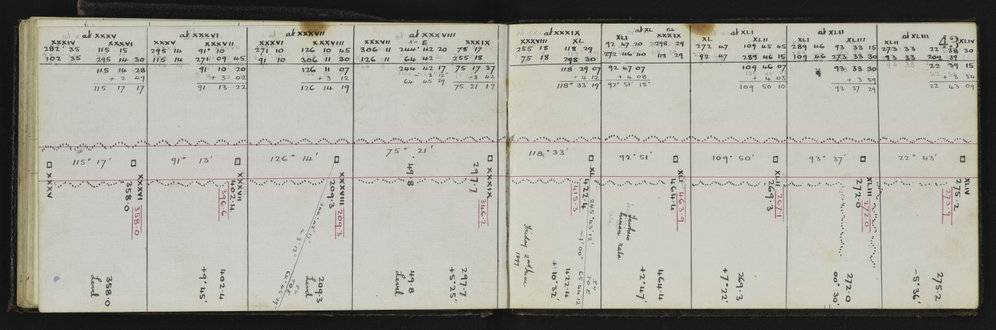 at XXXV
XXXIV XXXVI
282 35 115 15
102 35 295 14 30
115 14 28
+ 2 49
115 17 17
at XXXVI
XXXV XXXVII
295 14 91 10
115 14 271 09 45
91 10 20
+ 3 02
91 13 22
at XXXVII
XXXVI XXXVIII
271 10 126 10 45
91 10 306 11 30
126 11 07
+ 3 12
126 14 19
at XXXVIII
XXXVII E XXXIX
306 11 244 42 20 75 17
126 11 64 42 255 18
244 42 17 75 17 37
64 45 29 + 3 42
75 21 19
at XXXIX
XXXVIII XL
255 18 118 29
75 18 298 30
118 29 07
+ 4 12
118° 33 19
at XL
XLI XXXIX
92 47 20 298 29
272 46 40 118 29
92 47 07
+ 4 08
92° 51 15
at XLI
XL XLII
272 47 109 45 45
92 47 289 46 15
109 46 07
+ 4 03
109 50 10
at XLII
XLI XLIII
289 46 93 33 15
109 46 273 33 30
93 33 30
+ 3 59
93 37 29
at XLIII
XLII XLIV
273 33
93 33 202 39
22 39 15
+ 3 54
22 43 09
115° 17'
91° 13'
126° 14'
75° 21'
118° 33'
92° 51'
109° 50'
93° 37'
22° 43'
XXXV
XXXVI
358.0
358.0
358.0
Level
XXXVII
402.4
396.6
402.4
+9° 45'
XXXVIII
209.3
209.3
209.3
Level
49.8
49.8
Level
XXXIX
297.7
346.2
297.7
+5° 25'
XL
422.4
415.3
422.4
+10° 32'
Friday 2nd June
1899
XLI
464.4
463.9
464.4
+2° 47'
XLII
269.3
267.1
269.3
+7° 22'
XLIII
272.0
272.0
272.0
00° 30'
XLIV
275.2
273.9
275.2
-5° 36'